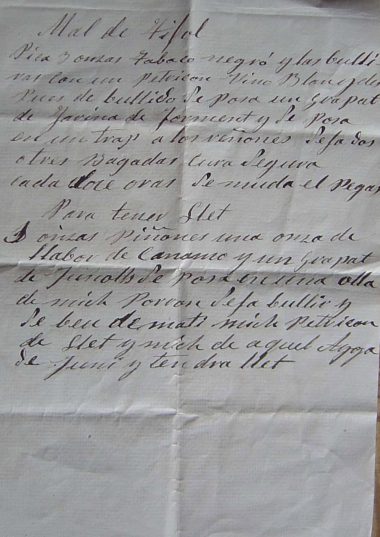 Mal de Fifol
Pica 3 onzas Tabaco negro y las bulli
ras con un petricon Vino Blanc y des
Pues de bullido se Posa un Grapat
de farina de forment y se Posa
en un trap a los riñones se fa dos
otres Bagadas Cura Segura
cada doce oras se muda el Pegat
Para tener Llet
3 onzas Piñones una onza de
llabor de Canamo y un Grapat
de Junolls se Posa en una olla
de mich Porron se fa bullir y
se beu de mati mich Petricon
de Llet y mich de aquel Aygua
de Junu y tendra llet